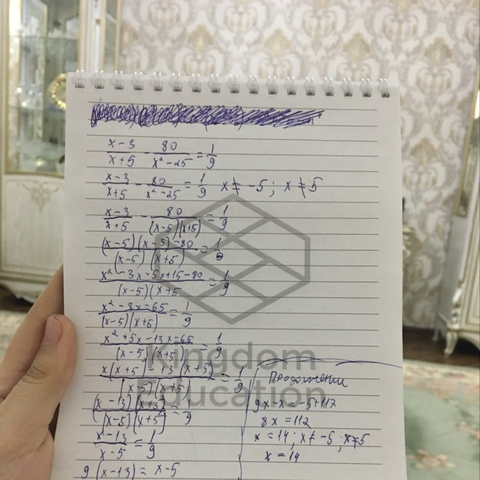 x-3/x+5 - 80/x²-25 = 1/9
x-3/x+5 - 80/x²-25 = 1/9 x ≠ -5; x ≠ 5
x-3/x+5 - 80/(x-5)(x+5) = 1/9
(x-5)(x-3)-80/(x-5)(x+5) = 1/9
x²-3x-5x+15-80/(x-5)(x+5 = 1/9
x²-8x-65/(x-5)(x+5) = 1/9
x²+5x-13x-65/(x-5)(x+5) = 1/9
x(x+5)-13(x+5)/(x-5)(x+5) = 1/9
(x-13)(x+5)/(x-5)(x+5) = 1/9
x-13/x-5 = 1/9
9(x-13) = x-5
Продолжении
9x-x = -5+117
8x = 112
x = 14; x ≠ -5, x ≠ 5
x = 14
Kingdom
education